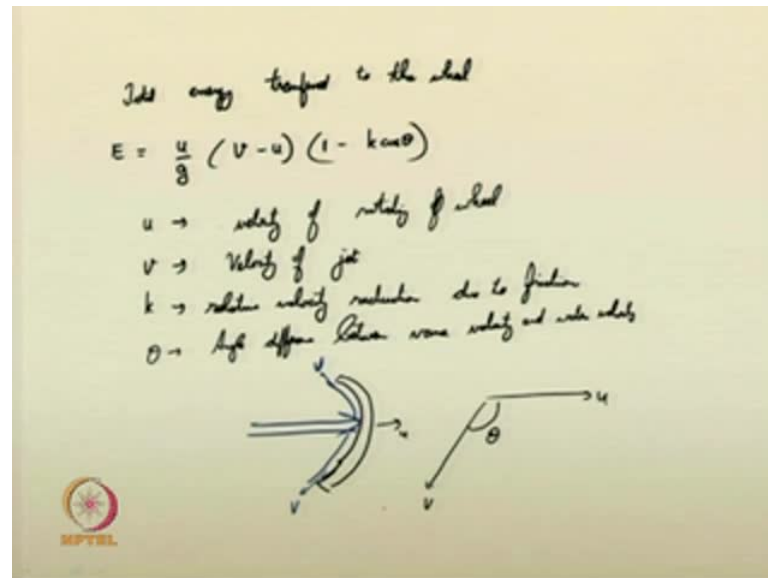 Total energy transferred to the wheel
E = u/g (V - u) (1 - k cos θ)
u → velocity of rotating of wheel
v → Velocity of jet
k → relative velocity reduction due to friction
θ → Angle difference between vane velocity and water velocity
v
u
u
θ
v
v
NPTEL